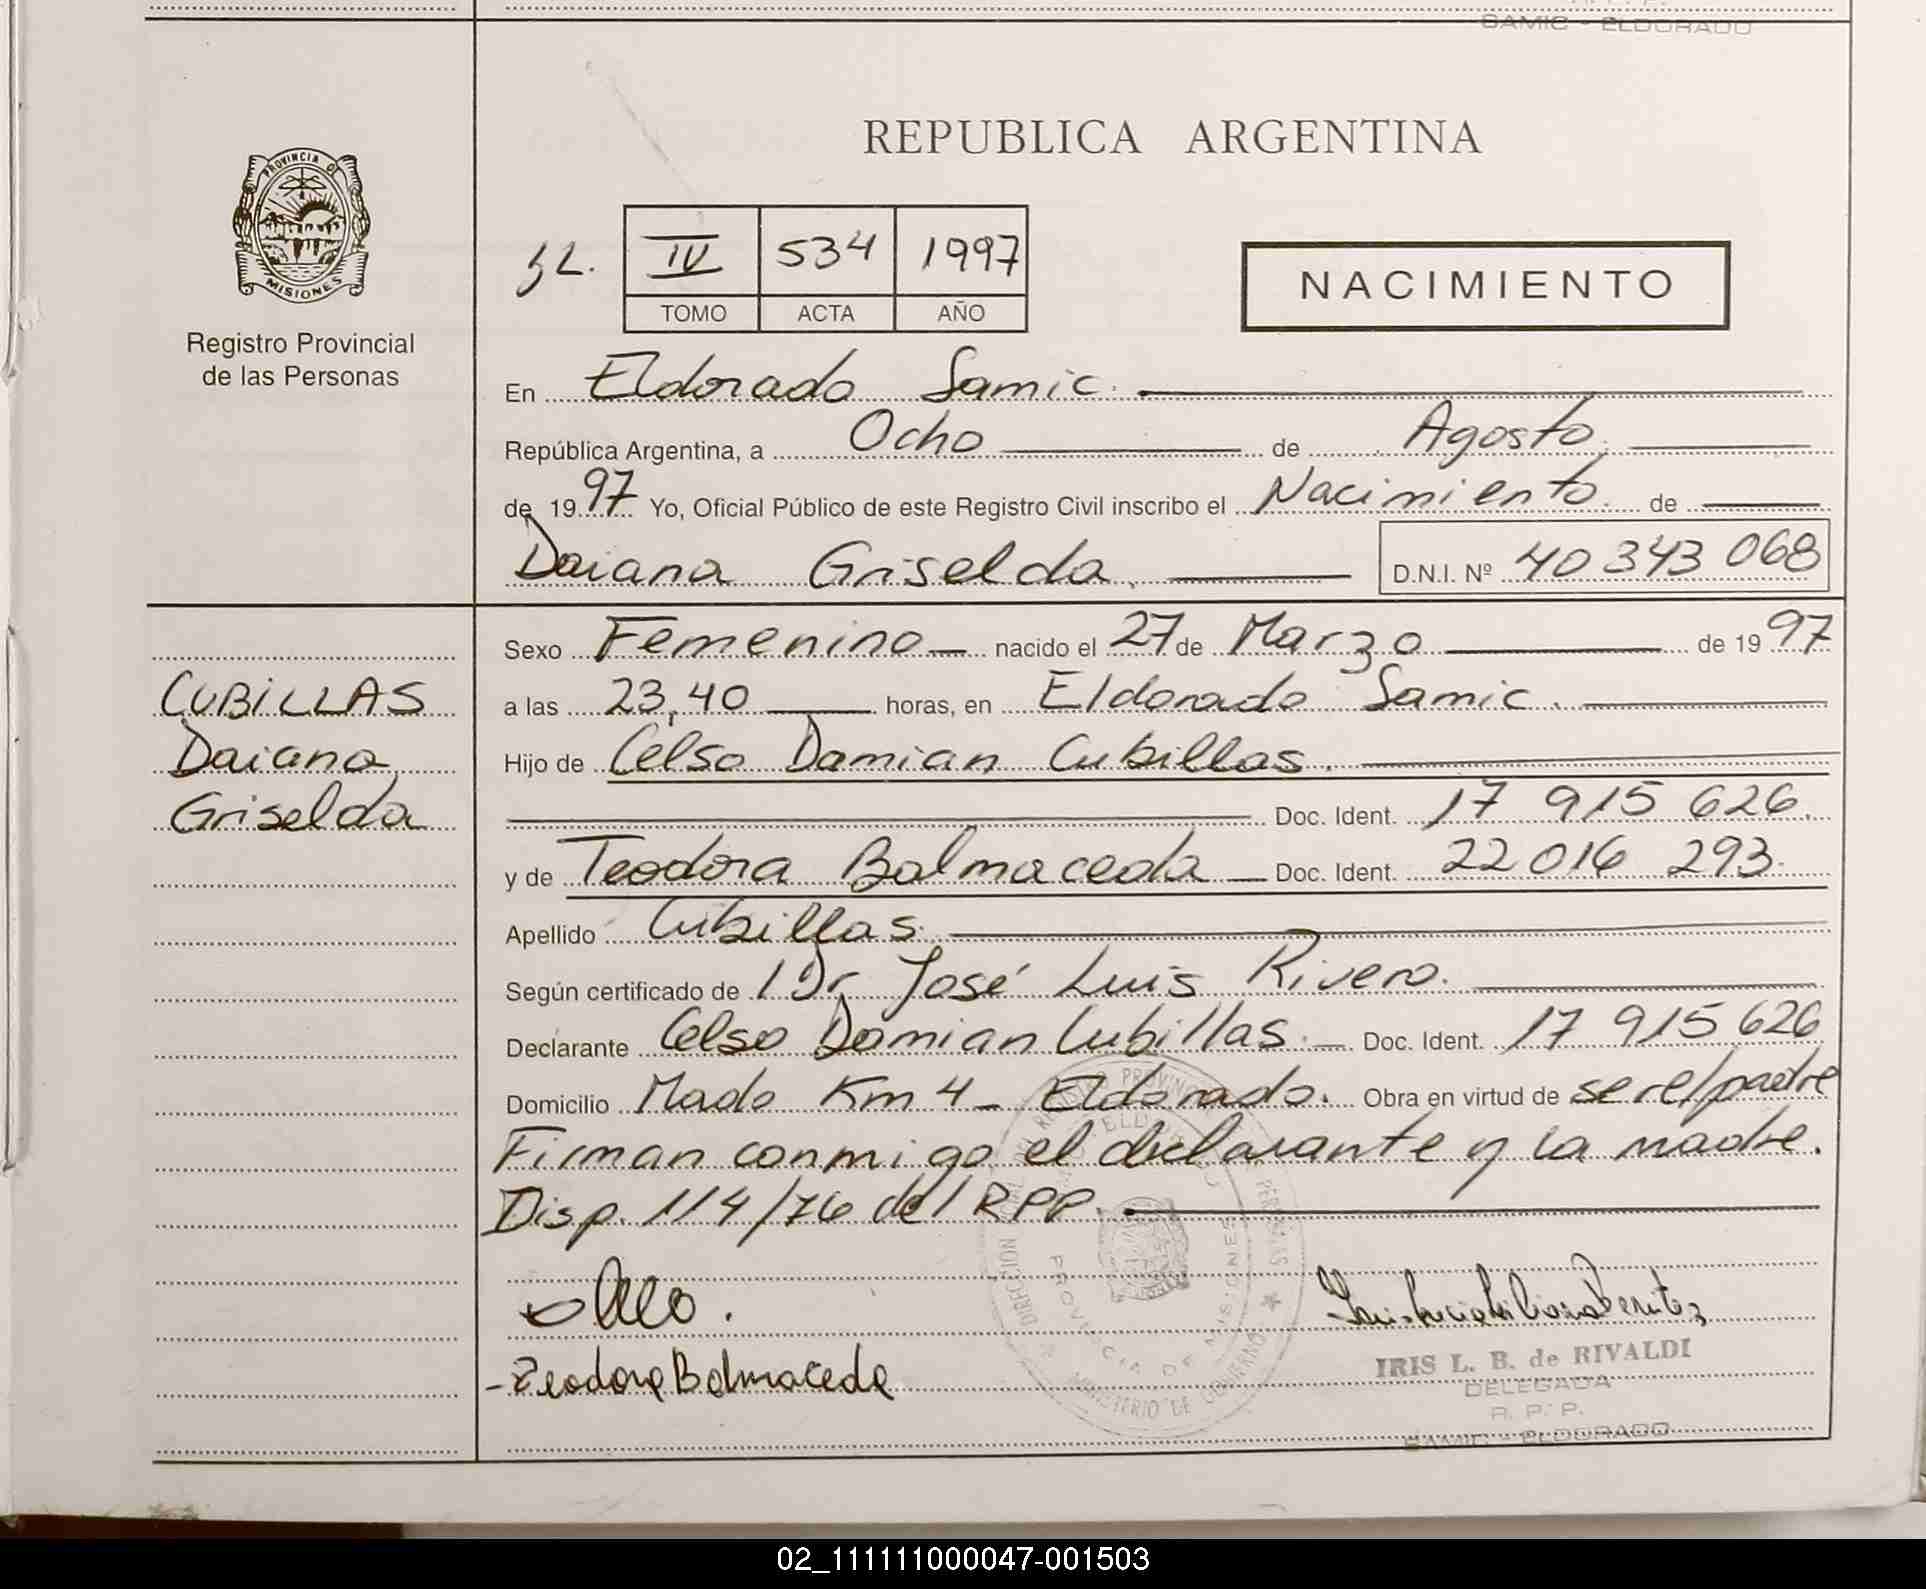 SAMIC - ELDORADO
PROVINCIA DE
MISIONES
Registro Provincial
de las Personas
REPUBLICA ARGENTINA
IV 534 1997
TOMO ACTA AÑO
NACIMIENTO
En Eldorado Samic.
República Argentina, a Ocho de Agosto.
de 1997 Yo, Oficial Público de este Registro Civil inscribo el Nacimiento. de
Daiana Griselda. D.N.I. Nº 40 343 068
CUBILLAS
Daiana
Griselda
Sexo Femenino nacido el 27 de Marzo de 1997
a las 23,40 horas, en Eldorado Samic.
Hijo de Celso Damian Cubillas.
Doc. Ident. 17 915 626.
y de Teodora Balmaceda Doc. Ident. 22 016 293.
Apellido Cubillas.
Según certificado de 1 Dr José Luis Rivero.
Declarante Celso Damian Cubillas. Doc. Ident. 17 915 626
Domicilio Mado Km 4 - Eldorado. Obra en virtud de ser el padre
Firman conmigo el declarante y la madre.
Disp. 114/76 del RPP.
Teodora Balmaceda
IRIS L. B. de RIVALDI
DELEGADA
R. P. P.
SAMIC - ELDORADO
PROVINCIA DE MISIONES
MINISTERIO DE GOBIERNO
02_111111000047-001503